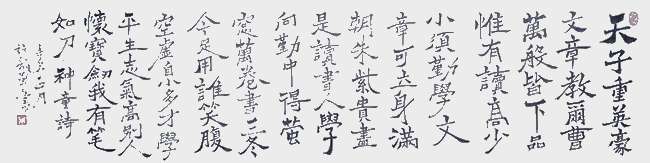 天子重英豪
文章教爾曹
萬般皆下品
惟有讀高少
小須勤學文
章可立身滿
朝朱紫貴盡
是讀書人學
向勤中得螢
窓萬卷書三冬
今足用誰笑腹
空虛自小多才學
平生志氣高别人
懷寶劍我有笔
如刀 神童詩
正月